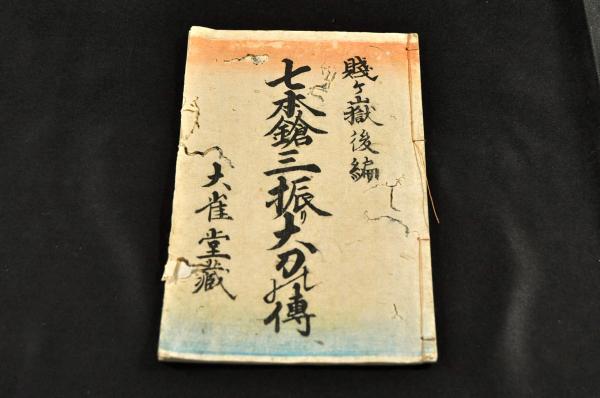 賤ヶ嶽後編
七本鎗三振り大刀の傳
大雀堂藏